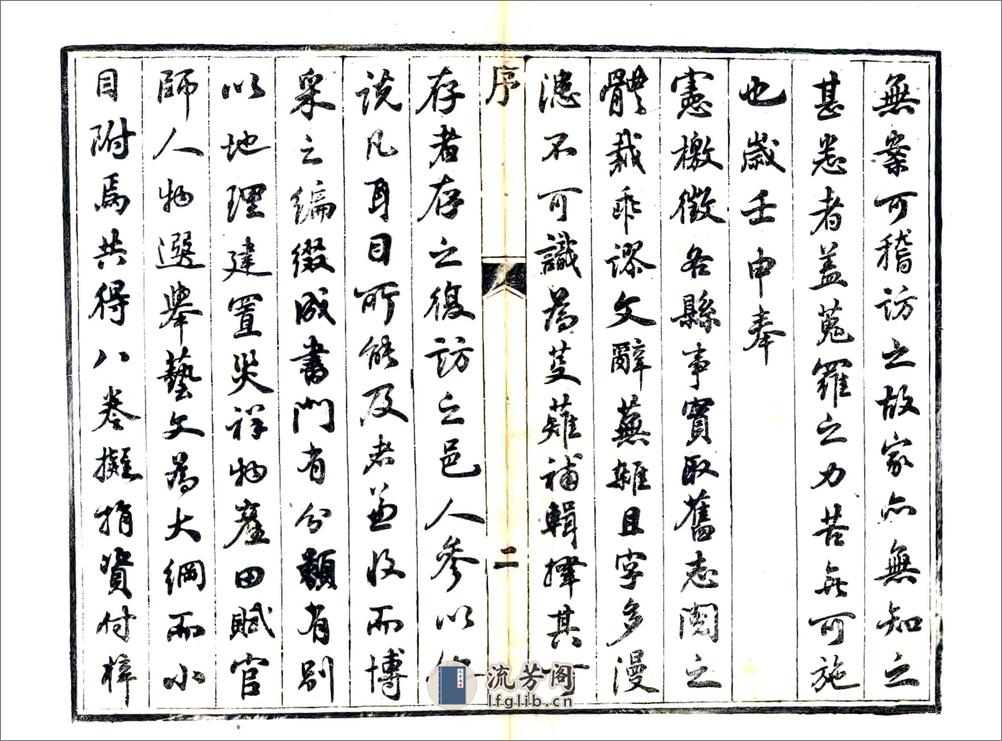 無案可稽訪之故家亦無知之
甚悉者蓋蒐羅之力苦無可施
也歲壬申奉
憲檄徵各縣事實取舊志閱之
體裁乖謬文辭蕪雜且字多漫
漶不可識為芟薙補輯擇其可
序
二
存者存之復訪之邑人參以
說凡耳目所能及者兼收而博
采之編綴成書門有分類有別
以地理建置災祥物產田賦官
師人物選舉藝文為大綱而小
目附焉共得八卷擬捐貲付梓
流芳阁
lfglib.cn